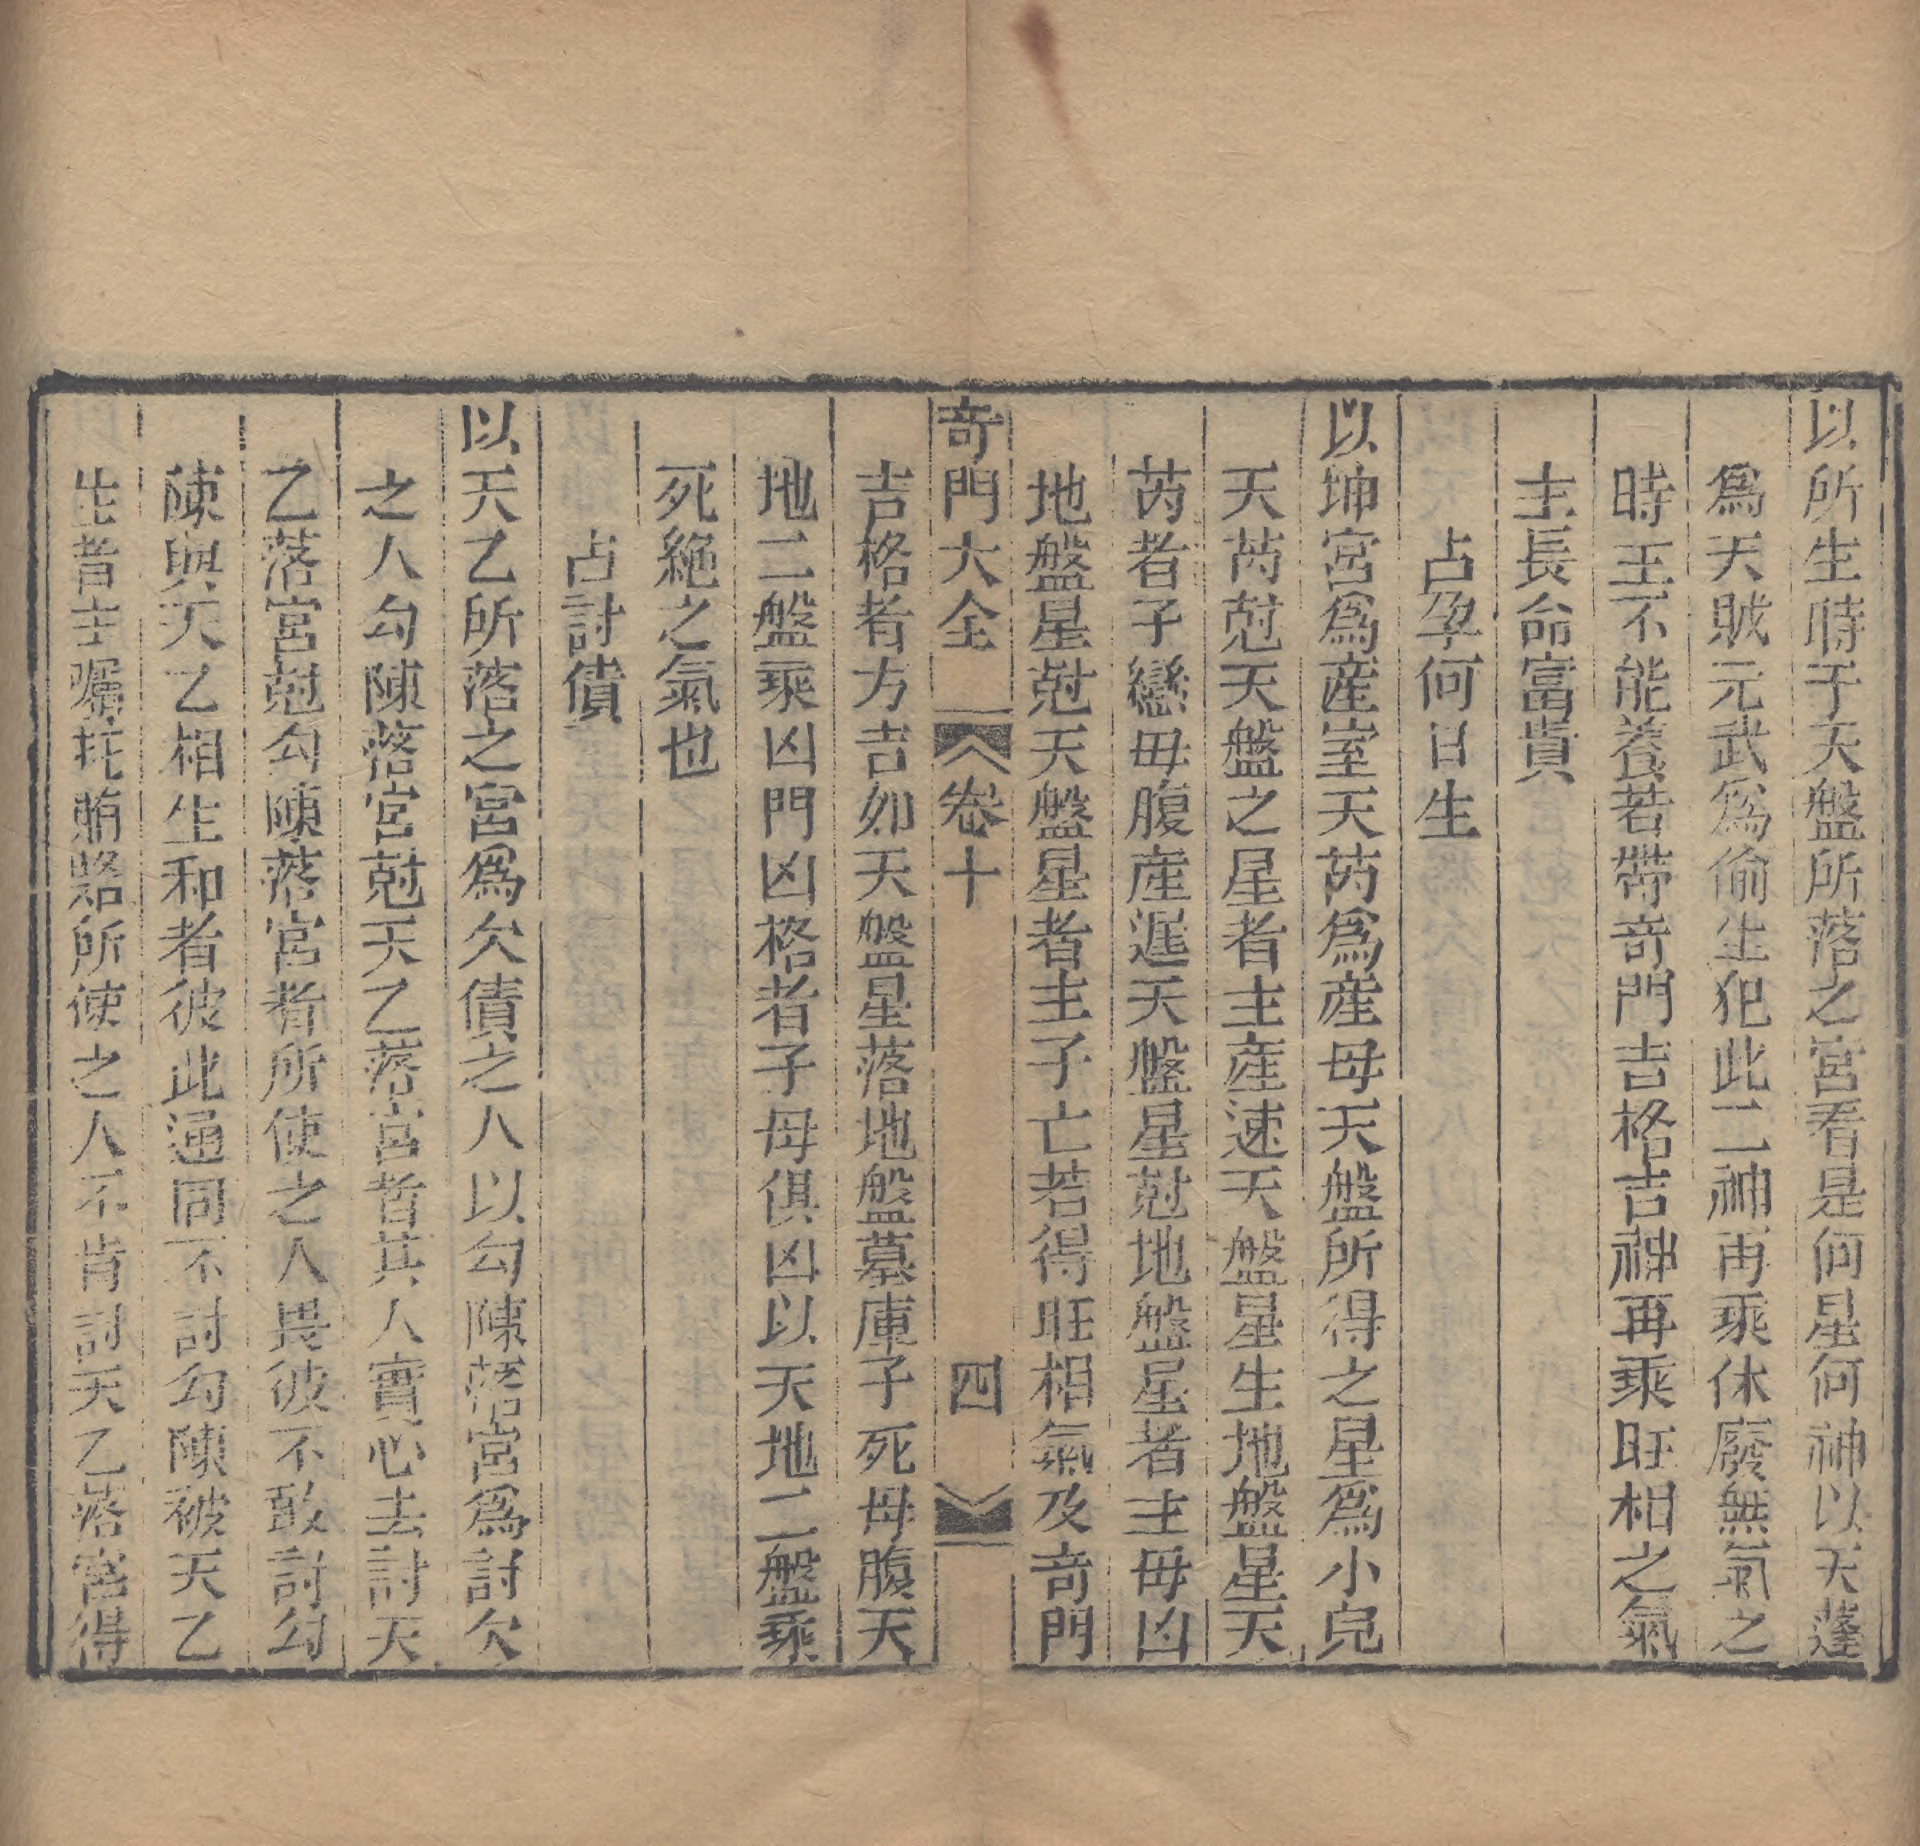 以所生時于天盤所落之宮看是何星何神以天蓬
爲天賊元武爲偷生犯此二神再乘休廢無氣之
時主不能養若帶奇門吉格吉神再乘旺相之氣
主長命富貴
占孕何日生
以坤宮爲産室天芮爲産母天盤所得之星爲小兒
天芮尅天盤之星者主産速天盤星生地盤星天
芮者子戀母腹産遲天盤星尅地盤星者主母凶
地盤星尅天盤星者主子亡若得旺相氣及奇門
奇門大全 卷十 四
吉格者方吉如天盤星落地盤墓庫子死母腹天
地二盤乘凶門凶格者子母俱凶以天地二盤乘
死絶之氣也
占討債
以天乙所落之宮爲欠債之人以勾陳落宮爲討欠
之人勾陳落宮尅天乙落宮者其人實心去討天
乙落宮尅勾陳落宮者所使之人畏彼不敢討勾
陳與天乙相生和者彼此通同不討勾陳被天乙
生者主囑托賄賂所使之人不肯討天乙落宮得